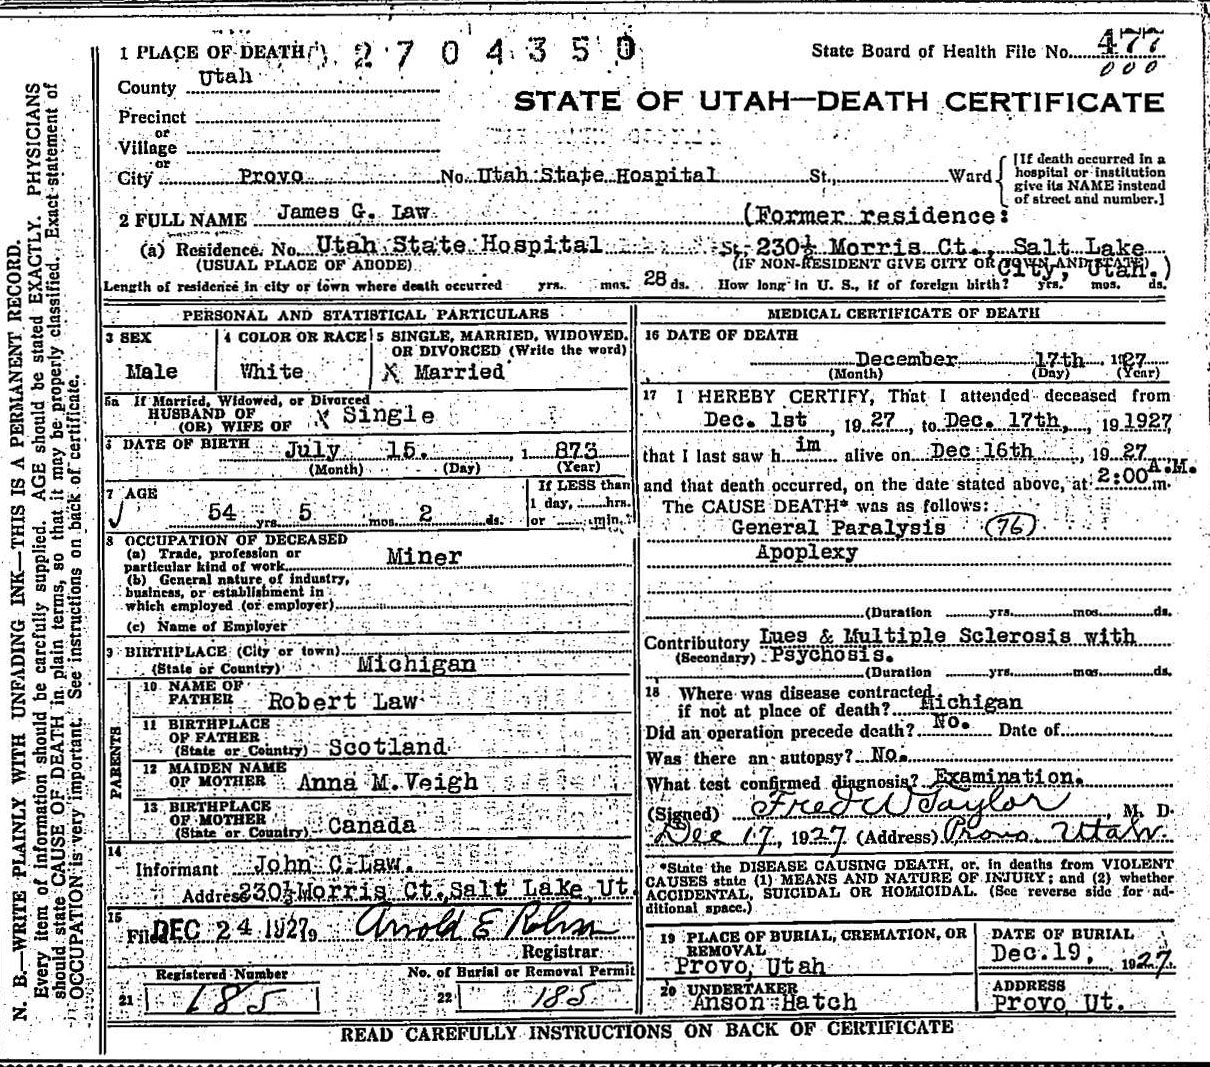 1 PLACE OF DEATH
02704350
State Board of Health File No. 477
000
County Utah
STATE OF UTAH—DEATH CERTIFICATE
Precinct
or
Village
or
City Provo No. Utah State Hospital St., Ward
[If death occurred in a
hospital or institution
give its NAME instead
of street and number.]
2 FULL NAME James G. Law (Former residence:
(a) Residence. No. Utah State Hospital St. 230½ Morris Ct., Salt Lake
(USUAL PLACE OF ABODE) (IF NON-RESIDENT GIVE CITY OR TOWN AND STATE)
City, Utah.)
Length of residence in city or town where death occurred yrs. mos. 28 ds. How long in U. S., if of foreign birth? yrs. mos. ds.
PERSONAL AND STATISTICAL PARTICULARS
3 SEX
Male
4 COLOR OR RACE
White
5 SINGLE, MARRIED, WIDOWED,
OR DIVORCED (Write the word)
X Married
5a If Married, Widowed, or Divorced
HUSBAND OF
(OR) WIFE OF X Single
6 DATE OF BIRTH July 15. 1 873
(Month) (Day) (Year)
7 AGE
54 yrs. 5 mos. 2 ds.
If LESS than
1 day, hrs.
or min.?
8 OCCUPATION OF DECEASED
(a) Trade, profession or
particular kind of work Miner
(b) General nature of industry,
business, or establishment in
which employed (or employer)
(c) Name of Employer
9 BIRTHPLACE (City or town)
(State or Country) Michigan
PARENTS
10 NAME OF
FATHER Robert Law
11 BIRTHPLACE
OF FATHER
(State or Country) Scotland
12 MAIDEN NAME
OF MOTHER Anna M.Veigh
13 BIRTHPLACE
OF MOTHER
(State or Country) Canada
14
Informant John C.Law.
Address 230½ Morris Ct., Salt Lake, Ut.
15
Filed DEC 24 1927 9 Arnold E
Registrar.
Registered Number
21 185
No. of Burial or Removal Permit
22 185
MEDICAL CERTIFICATE OF DEATH
16 DATE OF DEATH
December 17th 1927
(Month) (Day) (Year)
17 I HEREBY CERTIFY, That I attended deceased from
Dec. 1st, 19 27, to Dec. 17th, 19 1927
that I last saw h im alive on Dec 16th, 19 27
and that death occurred, on the date stated above, at 2:00 A.M. m.
The CAUSE DEATH* was as follows:
General Paralysis (76)
Apoplexy
(Duration yrs. mos. ds.
Contributory Lues & Multiple Sclerosis with
(Secondary) Psychosis.
(Duration yrs. mos. ds.
18 Where was disease contracted
if not at place of death? Michigan
Did an operation precede death? No. Date of
Was there an autopsy? No.
What test confirmed diagnosis? Examination.
(Signed) Fred W Taylor M. D.
Dec 17, 1927 (Address) Provo Utah.
*State the DISEASE CAUSING DEATH, or, in deaths from VIOLENT
CAUSES state (1) MEANS AND NATURE OF INJURY; and (2) whether
ACCIDENTAL, SUICIDAL OR HOMICIDAL. (See reverse side for ad-
ditional space.)
19 PLACE OF BURIAL, CREMATION, OR
REMOVAL
Provo, Utah
DATE OF BURIAL
Dec.19, 1927
20 UNDERTAKER
Anson Hatch
ADDRESS
Provo Ut.
READ CAREFULLY INSTRUCTIONS ON BACK OF CERTIFICATE
N. B.—WRITE PLAINLY WITH UNFADING INK—THIS IS A PERMANENT RECORD.
Every item of information should be carefully supplied. AGE should be stated EXACTLY. PHYSICIANS
should state CAUSE OF DEATH in plain terms, so that it may be properly classified. Exact statement of
OCCUPATION is very important. See instructions on back of certificate.